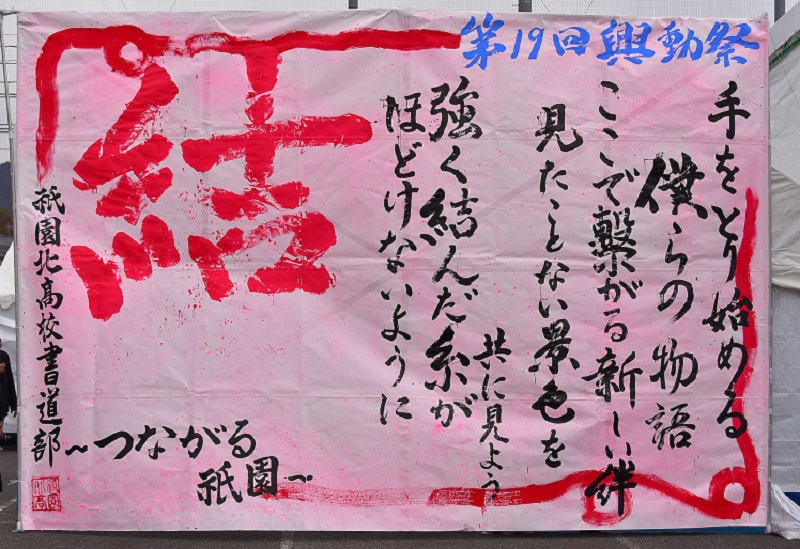 第19回興動祭
手をとり始める
僕らの物語
ここで繋がる新しい絆
見たことない景色を
共に見よう
強く結んだ糸が
ほどけないように
結
~つながる
祇園~
祇園北高校書道部